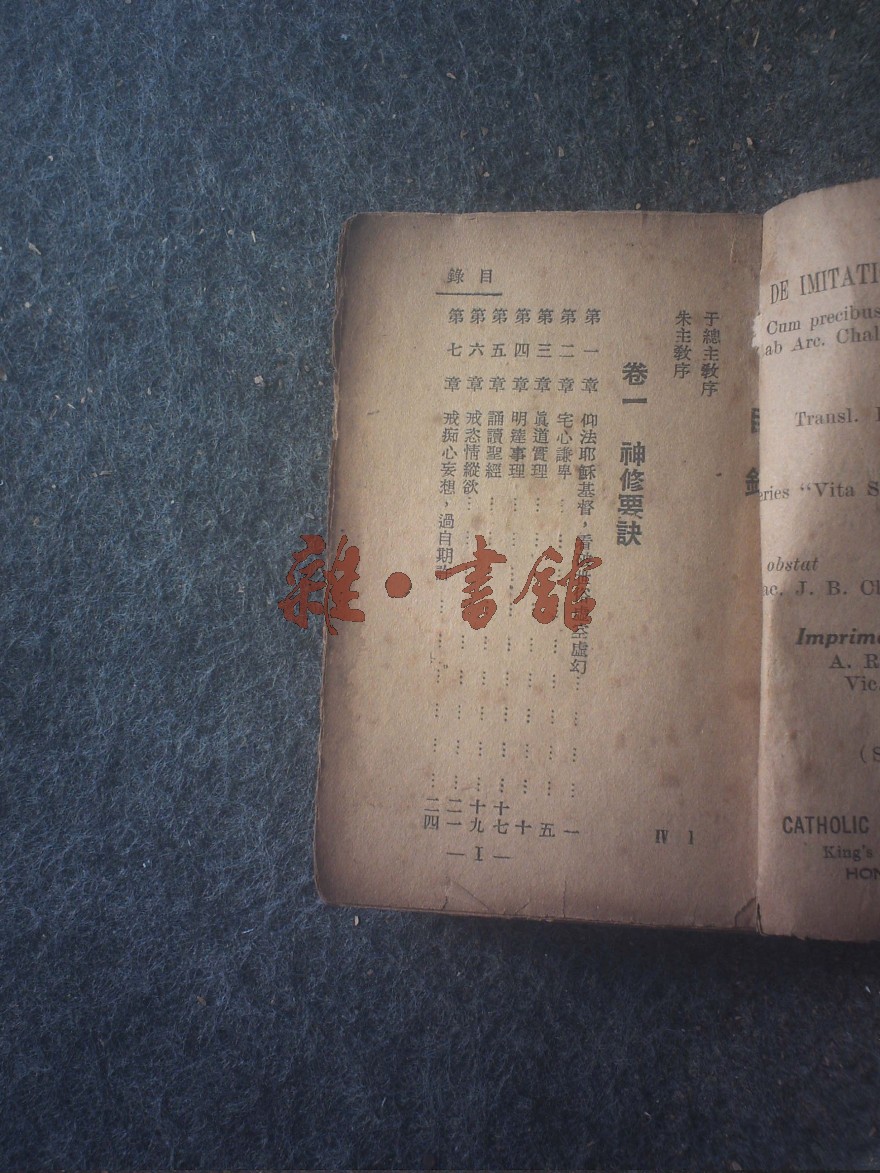 目錄
于總主教序 1
朱主教序 IV
卷一 神修要訣
第一章 仰法耶穌基督，看 虛幻 …… 一
第二章 宅心謙卑 …… 五
第三章 眞道實理 …… 十
第四章 明達事理 …… 十七
第五章 誦讀聖經 …… 十九
第六章 戒恣情縱欲 …… 二一
第七章 戒痴心妄想，過自期 …… 二四
— I —
雜·書館
DE IMITATI
Cum precibus
ab Arc. Chal
Transl.
eries “Vita S
obstat
ac. J. B. Ch
Imprim
A. R
Vic.
(S
CATHOLIC
King's
HON